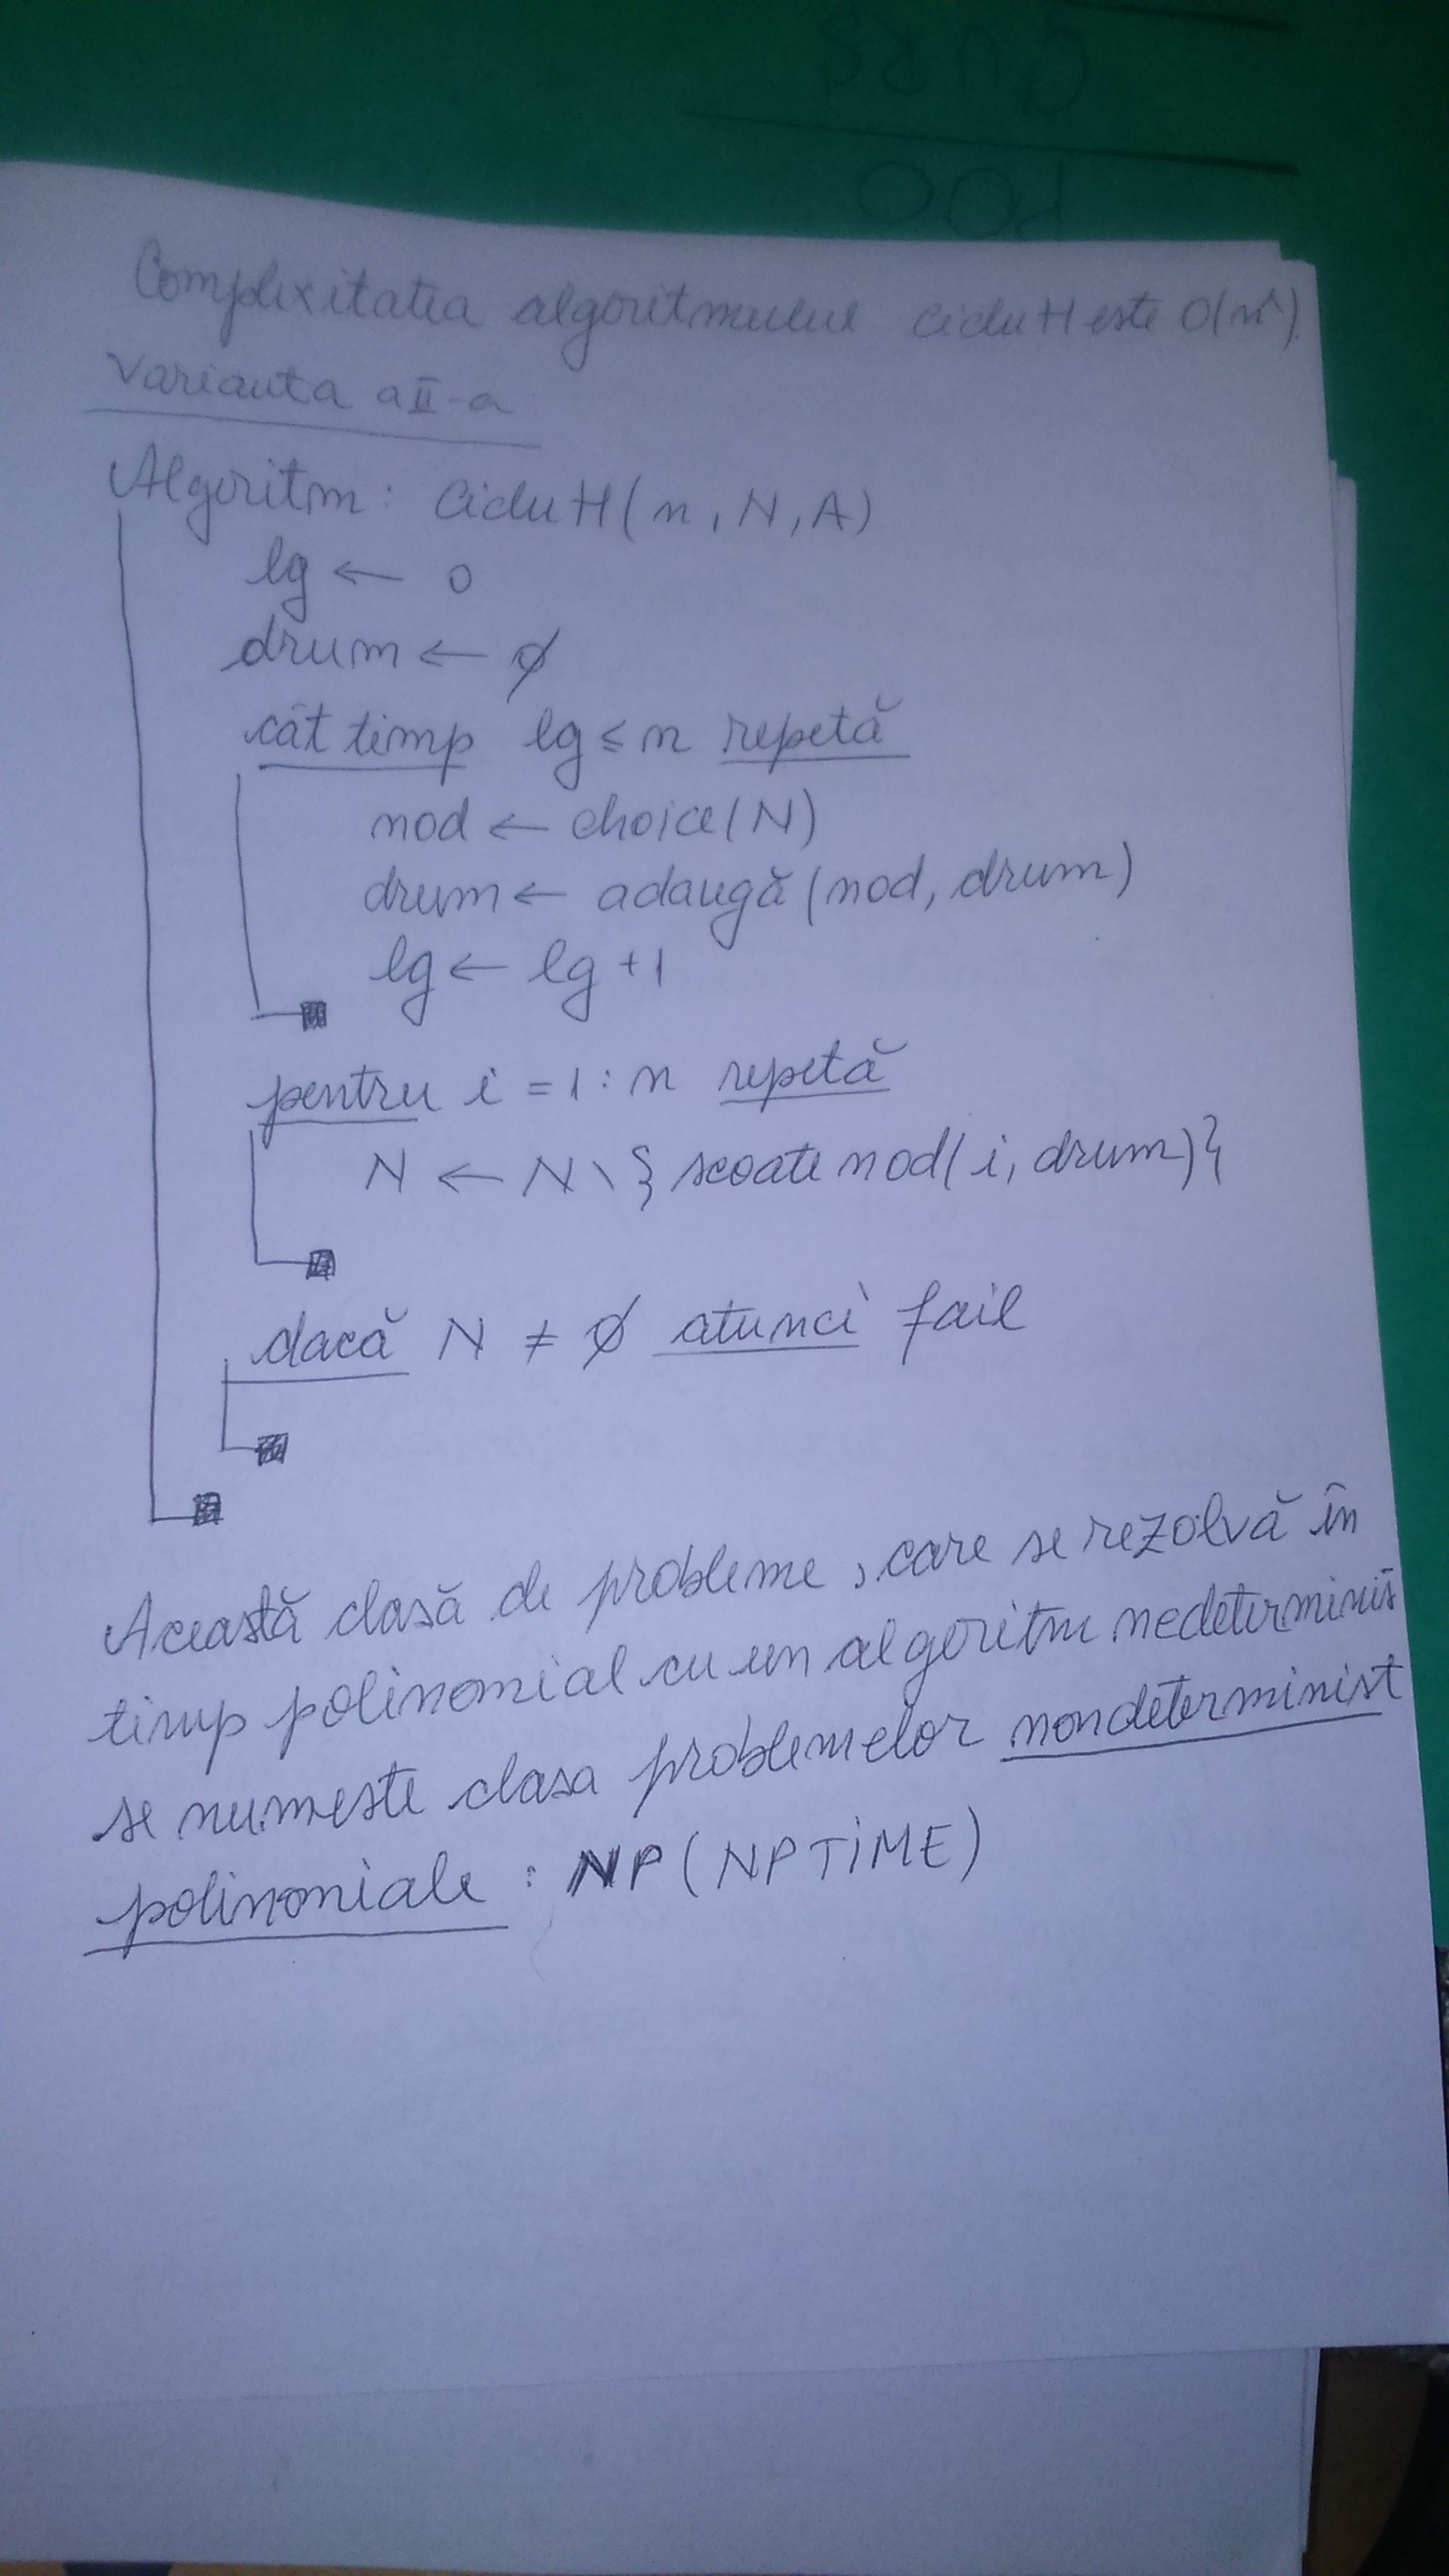 CURS
POO
Complexitatea algoritmului CicluH este
Varianta a II-a
Algoritm: CicluH(n, N, A)
lg ← 0
drum ← ∅
cât timp lg ≤ n repetă
nod ← choice(N)
drum ← adaugă(nod, drum)
lg ← lg + 1
pentru i = 1 : n repetă
N ← N \ { scoate nod(i, drum)}
dacă N ≠ ∅ atunci fail
Această clasă de probleme, care se rezolvă în
timp polinomial cu un algoritm nedeterminist
se numeste clasa problemelor nondeterminist
polinomiale : NP (NPTIME)